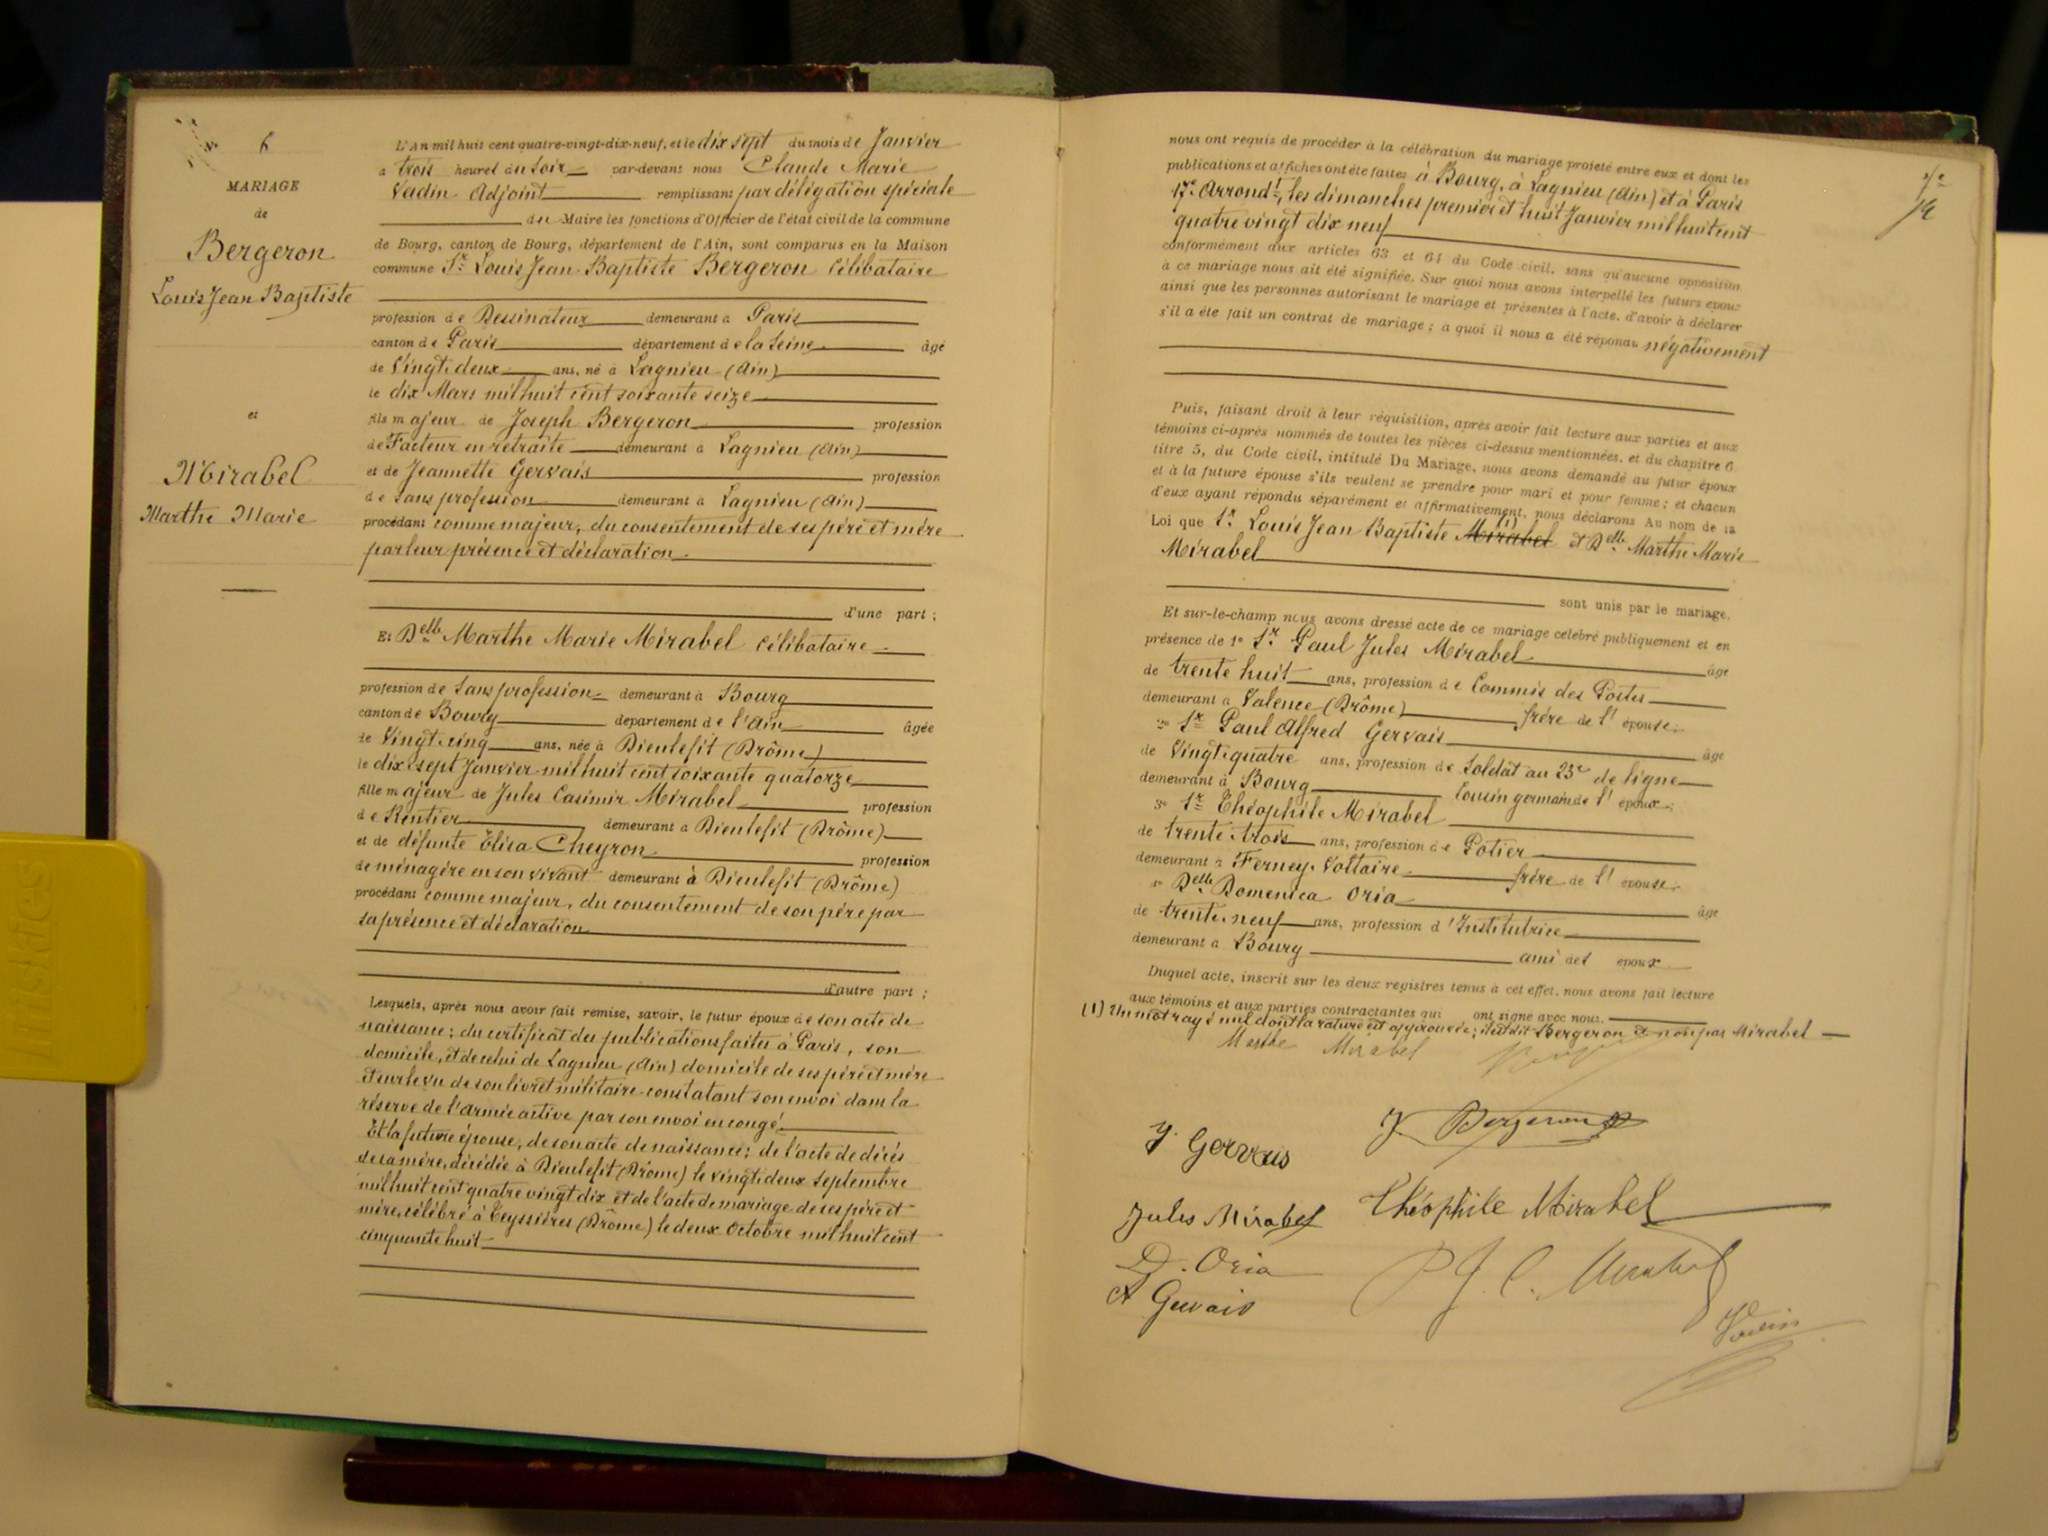 N° 6
MARIAGE
de
Bergeron
Louis Jean Baptiste
et
Mirabel
Marthe Marie
L'An mil huit cent quatre-vingt-dix-neuf, et le dix sept du mois de Janvier
à trois heures du soir par-devant nous Claude Marie
Vadin Adjoint remplissant par délégation spéciale
du Maire les fonctions d'Officier de l'état civil de la commune
de Bourg, canton de Bourg, département de l'Ain, sont comparus en la Maison
commune Sr Louis Jean Baptiste Bergeron Célibataire
profession de Dessinateur demeurant à Paris
canton de Paris département de la Seine âgé
de Vingt deux ans, né à Lagnieu (Ain)
le dix Mars mil huit cent soixante seize
fils majeur de Joseph Bergeron profession
de Facteur en retraite demeurant à Lagnieu (Ain)
et de Jeannette Gervais profession
de sans profession demeurant à Lagnieu (Ain)
procédant comme majeur, du consentement de ses père et mère
par leur présence et déclaration
d'une part ;
Et Delle Marthe Marie Mirabel Célibataire
profession de Sans profession demeurant à Bourg
canton de Bourg département de l'Ain âgée
de Vingt cinq ans, née à Dieulefit (Drôme)
le dix sept Janvier mil huit cent soixante quatorze
fille majeur de Jules Casimir Mirabel profession
de Rentier demeurant à Dieulefit (Drôme)
et de défunte Elisa Cheyron profession
de ménagère en son vivant demeurant à Dieulefit (Drôme)
procédant comme majeur, du consentement de son père par
sa présence et déclaration
d'autre part ;
Lesquels, après nous avoir fait remise, savoir, le futur époux de son acte de
naissance ; du certificat des publications faites à Paris, son
domicile, et de celui de Lagnieu (Ain) domicile de ses père et mère
Et sur le vu de son livret militaire constatant son envoi dans la
réserve de l'armée active par son envoi en congé.
Et la future épouse, de son acte de naissance ; de l'acte de décès
de sa mère, décédée à Dieulefit (Drôme) le vingt deux Septembre
mil huit cent quatre vingt dix et de l'acte de mariage de ses père et
mère, célébré à Teyssières (Drôme) le deux Octobre mil huit cent
cinquante huit
nous ont requis de procéder à la célébration du mariage projeté entre eux et dont les
publications et affiches ont été faites à Bourg, à Lagnieu (Ain) et à Paris
17e Arrondt, les dimanches premier et huit Janvier mil huit cent
quatre vingt dix neuf
conformément aux articles 63 et 64 du Code civil, sans qu'aucune opposition
à ce mariage nous ait été signifiée. Sur quoi nous avons interpellé les futurs époux
ainsi que les personnes autorisant le mariage et présentes à l'acte, d'avoir à déclarer
s'il a été fait un contrat de mariage ; à quoi il nous a été répondu négativement
Puis, faisant droit à leur réquisition, après avoir fait lecture aux parties et aux
témoins ci-après nommés de toutes les pièces ci-dessus mentionnées, et du chapitre 6
titre 5, du Code civil, intitulé Du Mariage, nous avons demandé au futur époux
et à la future épouse s'ils veulent se prendre pour mari et pour femme ; et chacun
d'eux ayant répondu séparément et affirmativement, nous déclarons Au nom de la
Loi que Sr Louis Jean Baptiste Mirabel (1) et Delle Marthe Marie
Mirabel
sont unis par le mariage.
Et sur-le-champ nous avons dressé acte de ce mariage célébré publiquement et en
présence de 1° Sr Paul Jules Mirabel âgé
de trente huit ans, profession de Commis des Postes
demeurant à Valence (Drôme) frère de l'épouse ;
2° Sr Paul Alfred Gervais âgé
de Vingt quatre ans, profession de Soldat au 23e de ligne
demeurant à Bourg Cousin germain de l'époux ;
3° Sr Théophile Mirabel
de trente trois ans, profession de Potier
demeurant à Ferney-Voltaire frère de l'épouse
Delle Domenica Oria âgé
de trente neuf ans, profession d'Institutrice
demeurant à Bourg ami des époux
Duquel acte, inscrit sur les deux registres tenus à cet effet, nous avons fait lecture
aux témoins et aux parties contractantes qui ont signé avec nous.
(1) Un mot rayé nul dont la rature est approuvée ; il faut lit Bergeron et non pas Mirabel
Marthe Mirabel
J. Gervais J. Bergeron
Jules Mirabel Théophile Mirabel
D. Oria P J. C. Mirabel
A Gervais Vadin